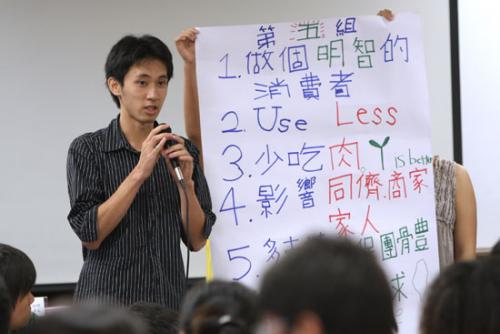 第五組
1. 做個明智的
消費者
2. Use Less
3. 少吃肉, Y is better
4. 影響同儕.商家
家人
5. 多 團體